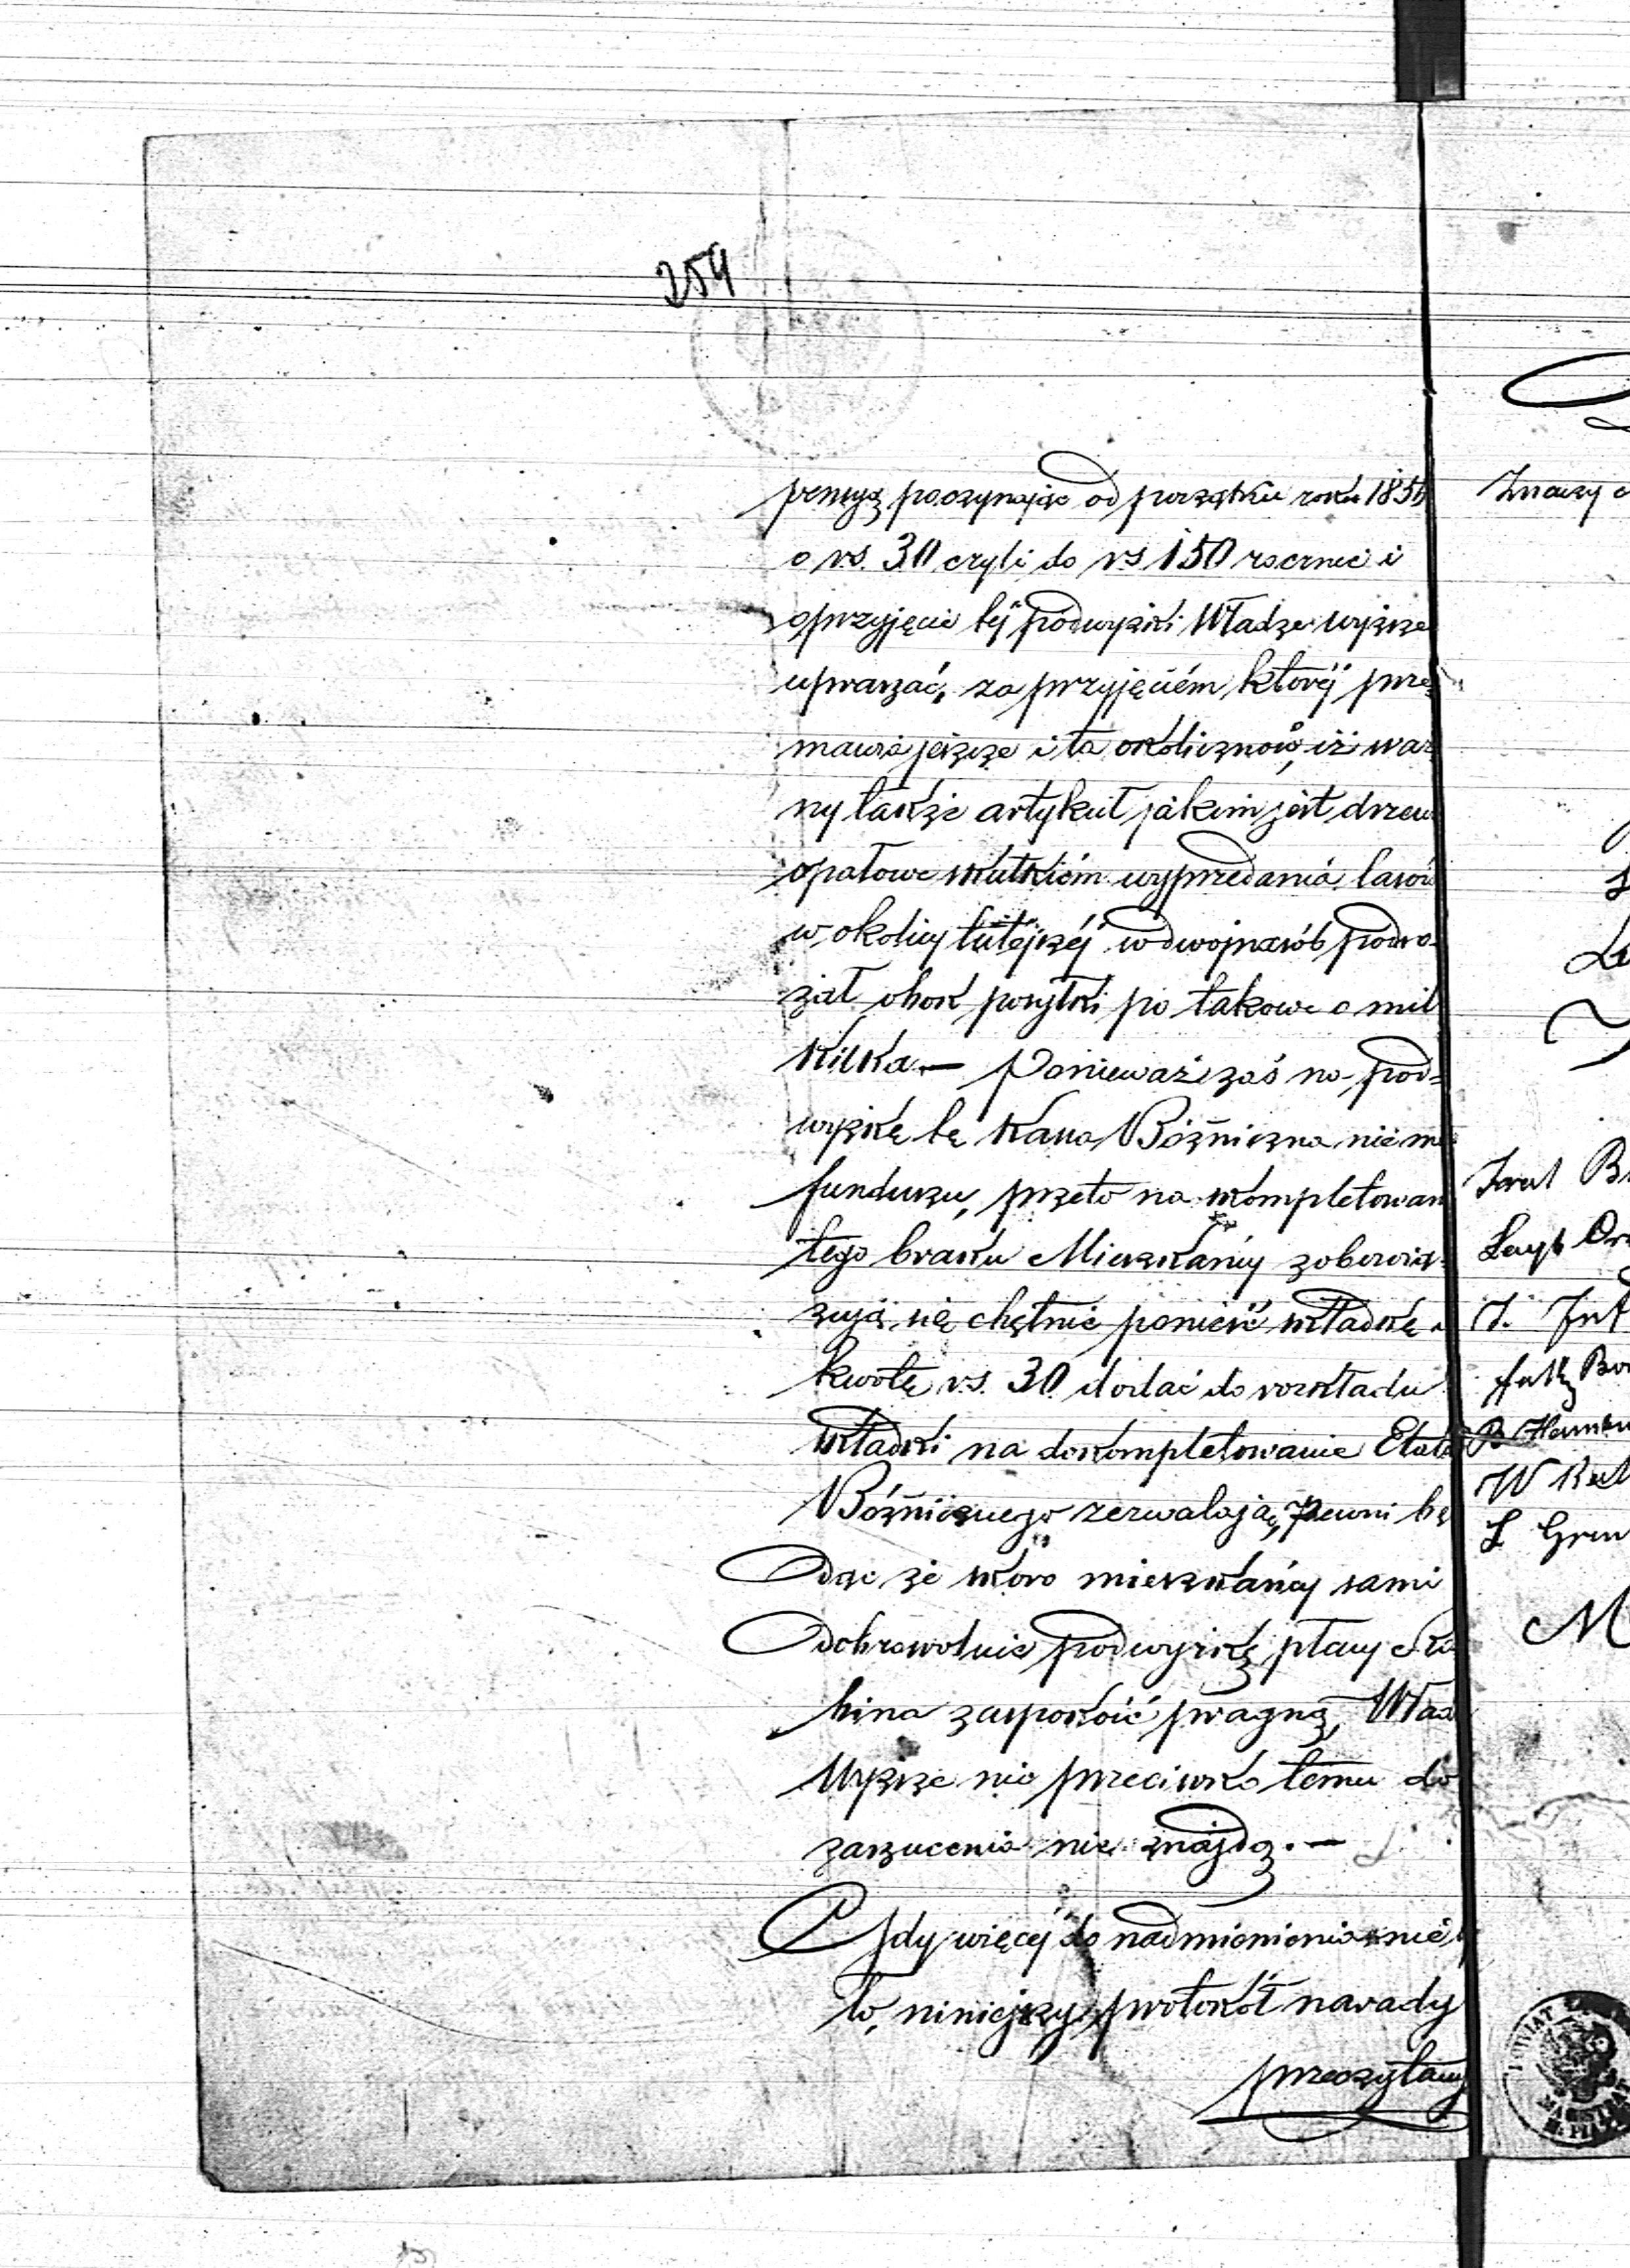 254
pensyą poczynając od początku roku 185
o rs. 30 czyli do rs 150 rocznie i
o przyjęcie téj podwyżki Władze wyższe
upraszać, za przyjęciém któréj prze
mawia jeszcze i ta okoliczność, iż waż
ny także artykuł jakim jest drzew
opałowe skutkiém wyprzedania lasów
w okolicy tutéjszéj w dwojnasób podro-
żał obok posyłki po takowe o mil
kilka. — Ponieważ zaś na pod=
wyżkę tę Kassa Bóżniczna nie ma
funduszu, przeto na skompletowan
tego braku Mieszkańcy zobowią-
zują się chętnie ponieść składkę i
kwotę rs. 30 dodać do rozkładu
składki na dokompletowanie Etatu
Bóżnicznego zezwalają, pewni bę
dąc że skoro mieszkańcy sami
dobrowolnie podwyżkę płacy Ra
bina zaspokoić pragną, Wład
Wyższe nic przeciwko temu do
zarzucenia nie znajdą. —
Gdy więcéj do nadmienienia nie
to, niniejszy protokół narady
przeczytany
Znaczy
B
J.
W
S
M
POWIAT
MAGISTRAT